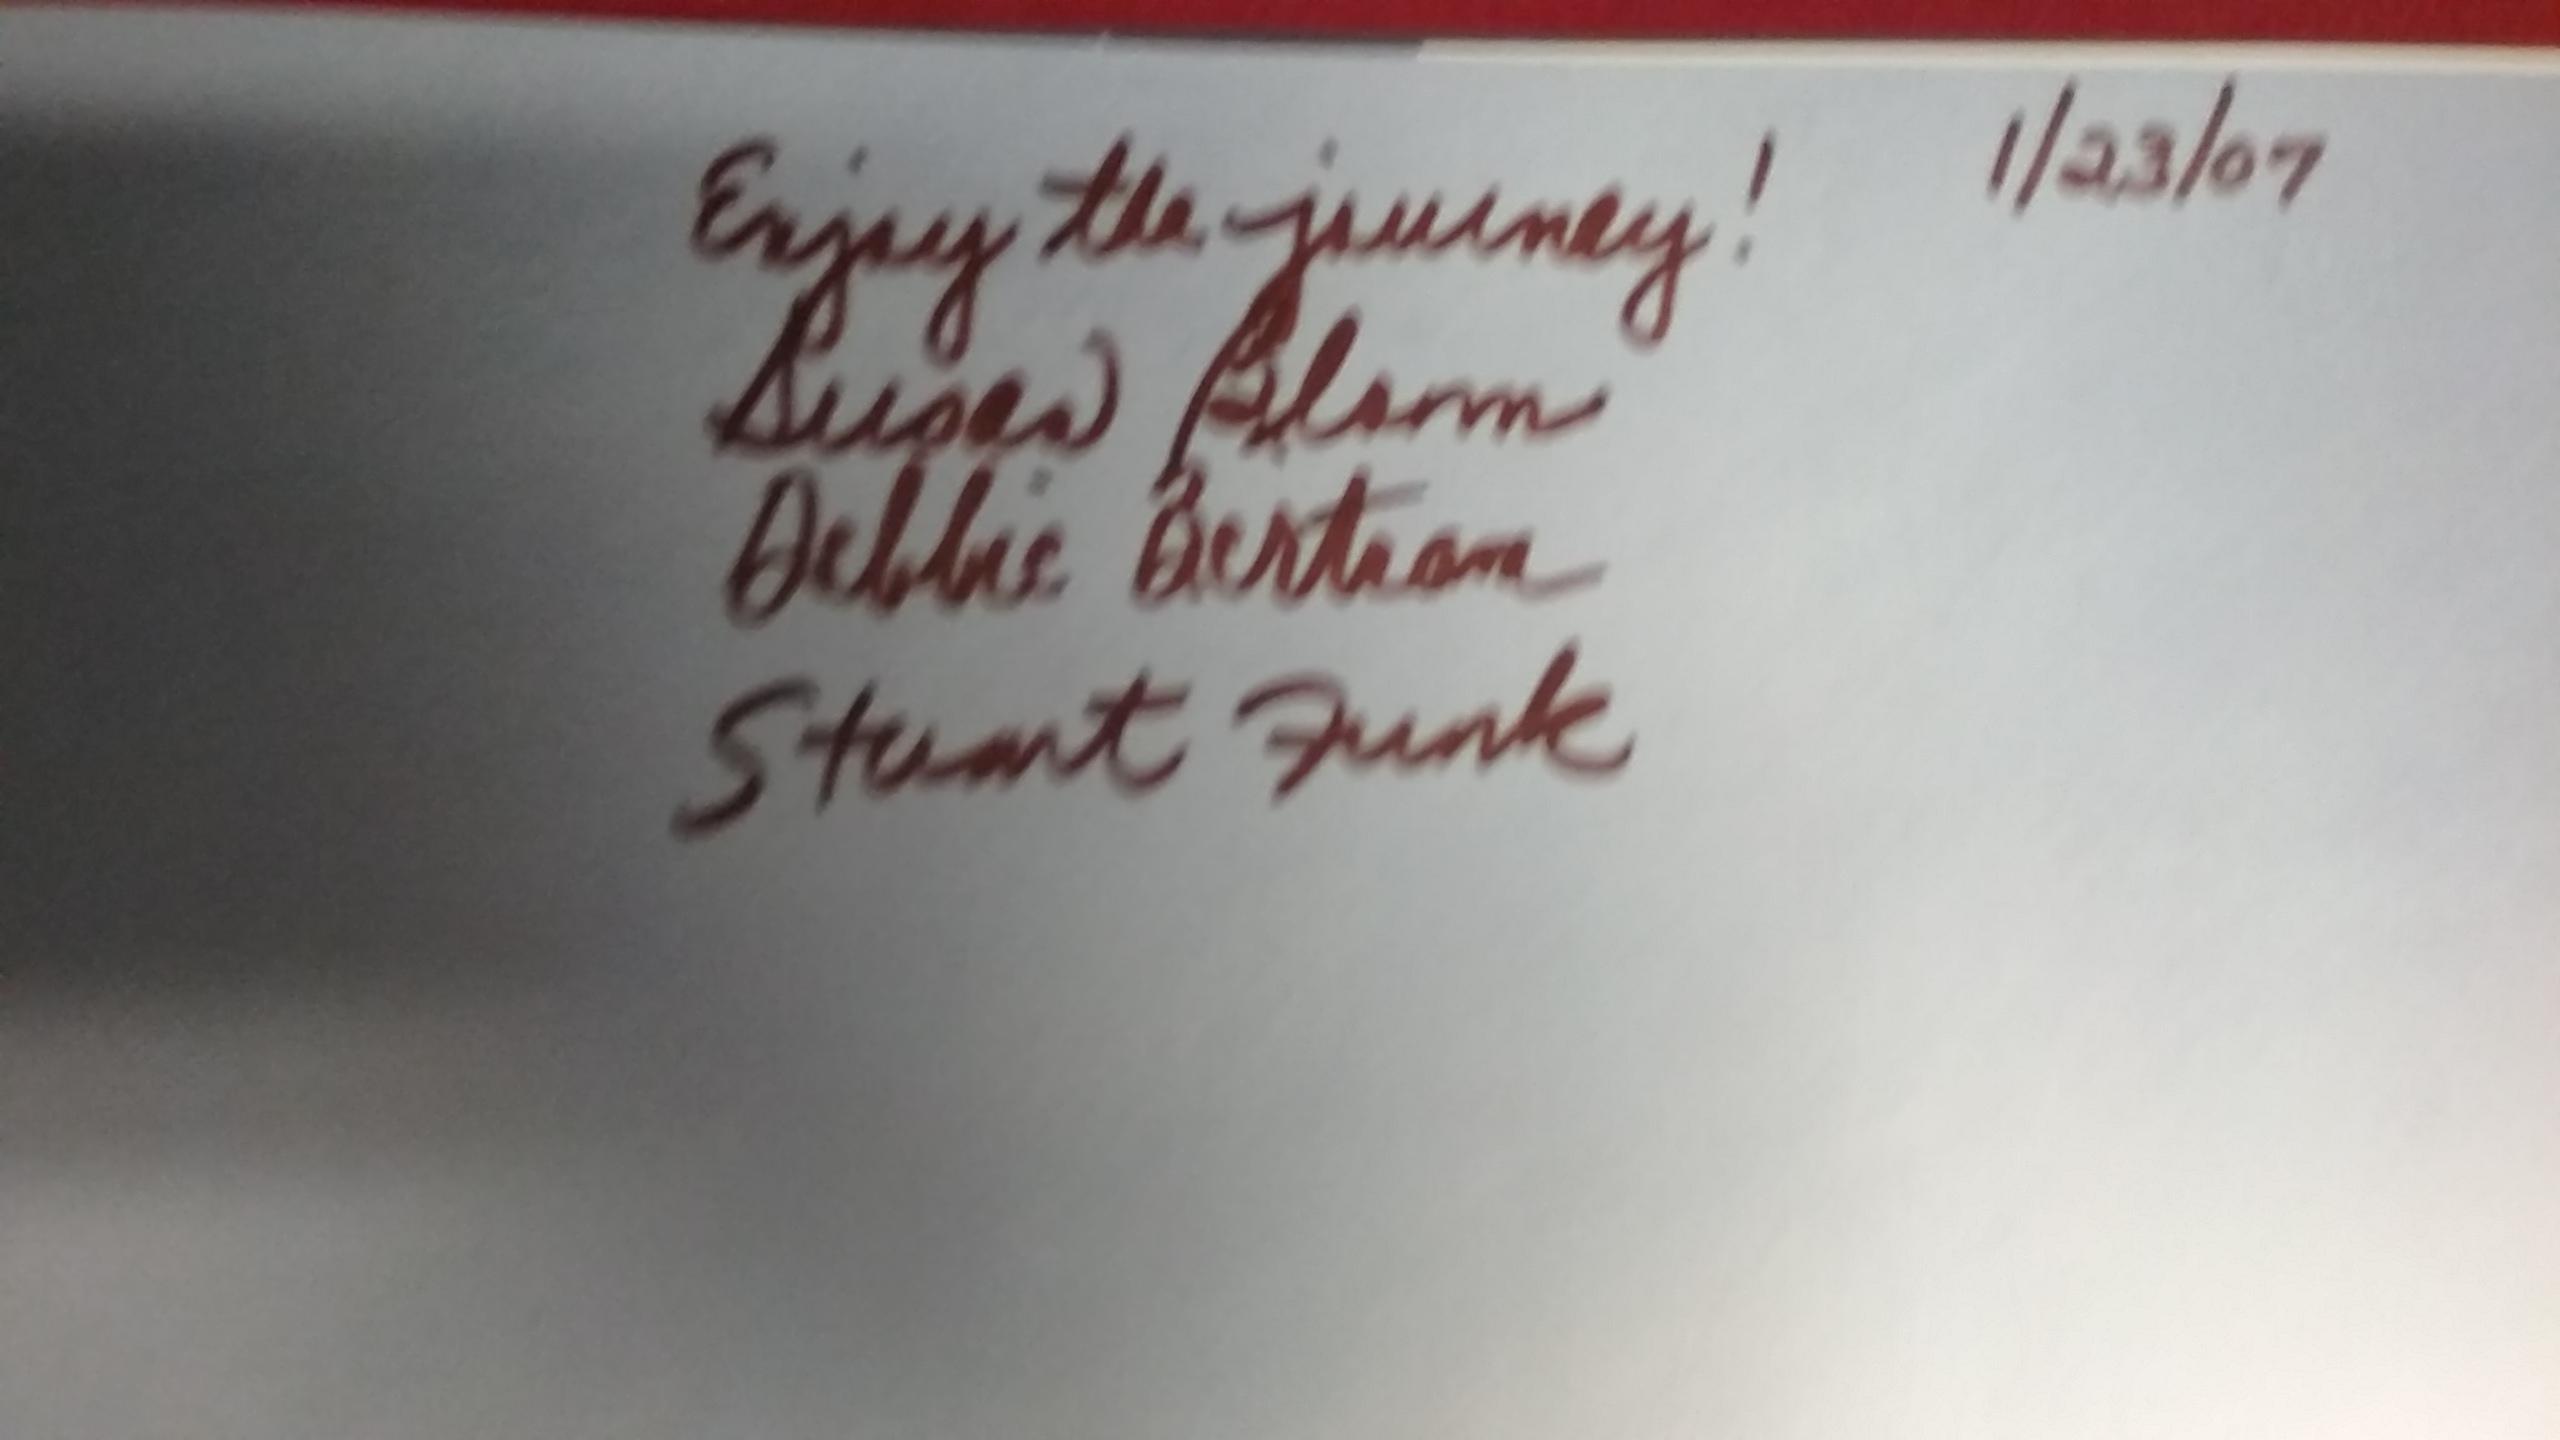 Enjoy the journey! 1/23/07
Susan Bloom
Debbie Bertram
Stuart Funk